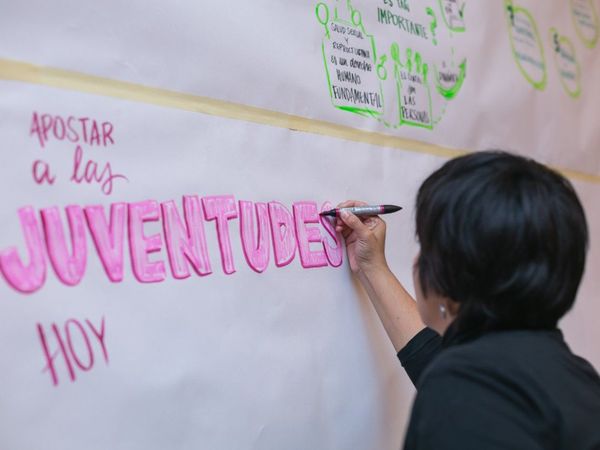 ES TAN
IMPORTANTE?
SALUD SEXUAL
Y
REPRODUCTIVA
es un derecho
HUMANO
FUNDAMENTAL
las
PERSONAS
APOSTAR
a las
JUVENTUDES
HOY